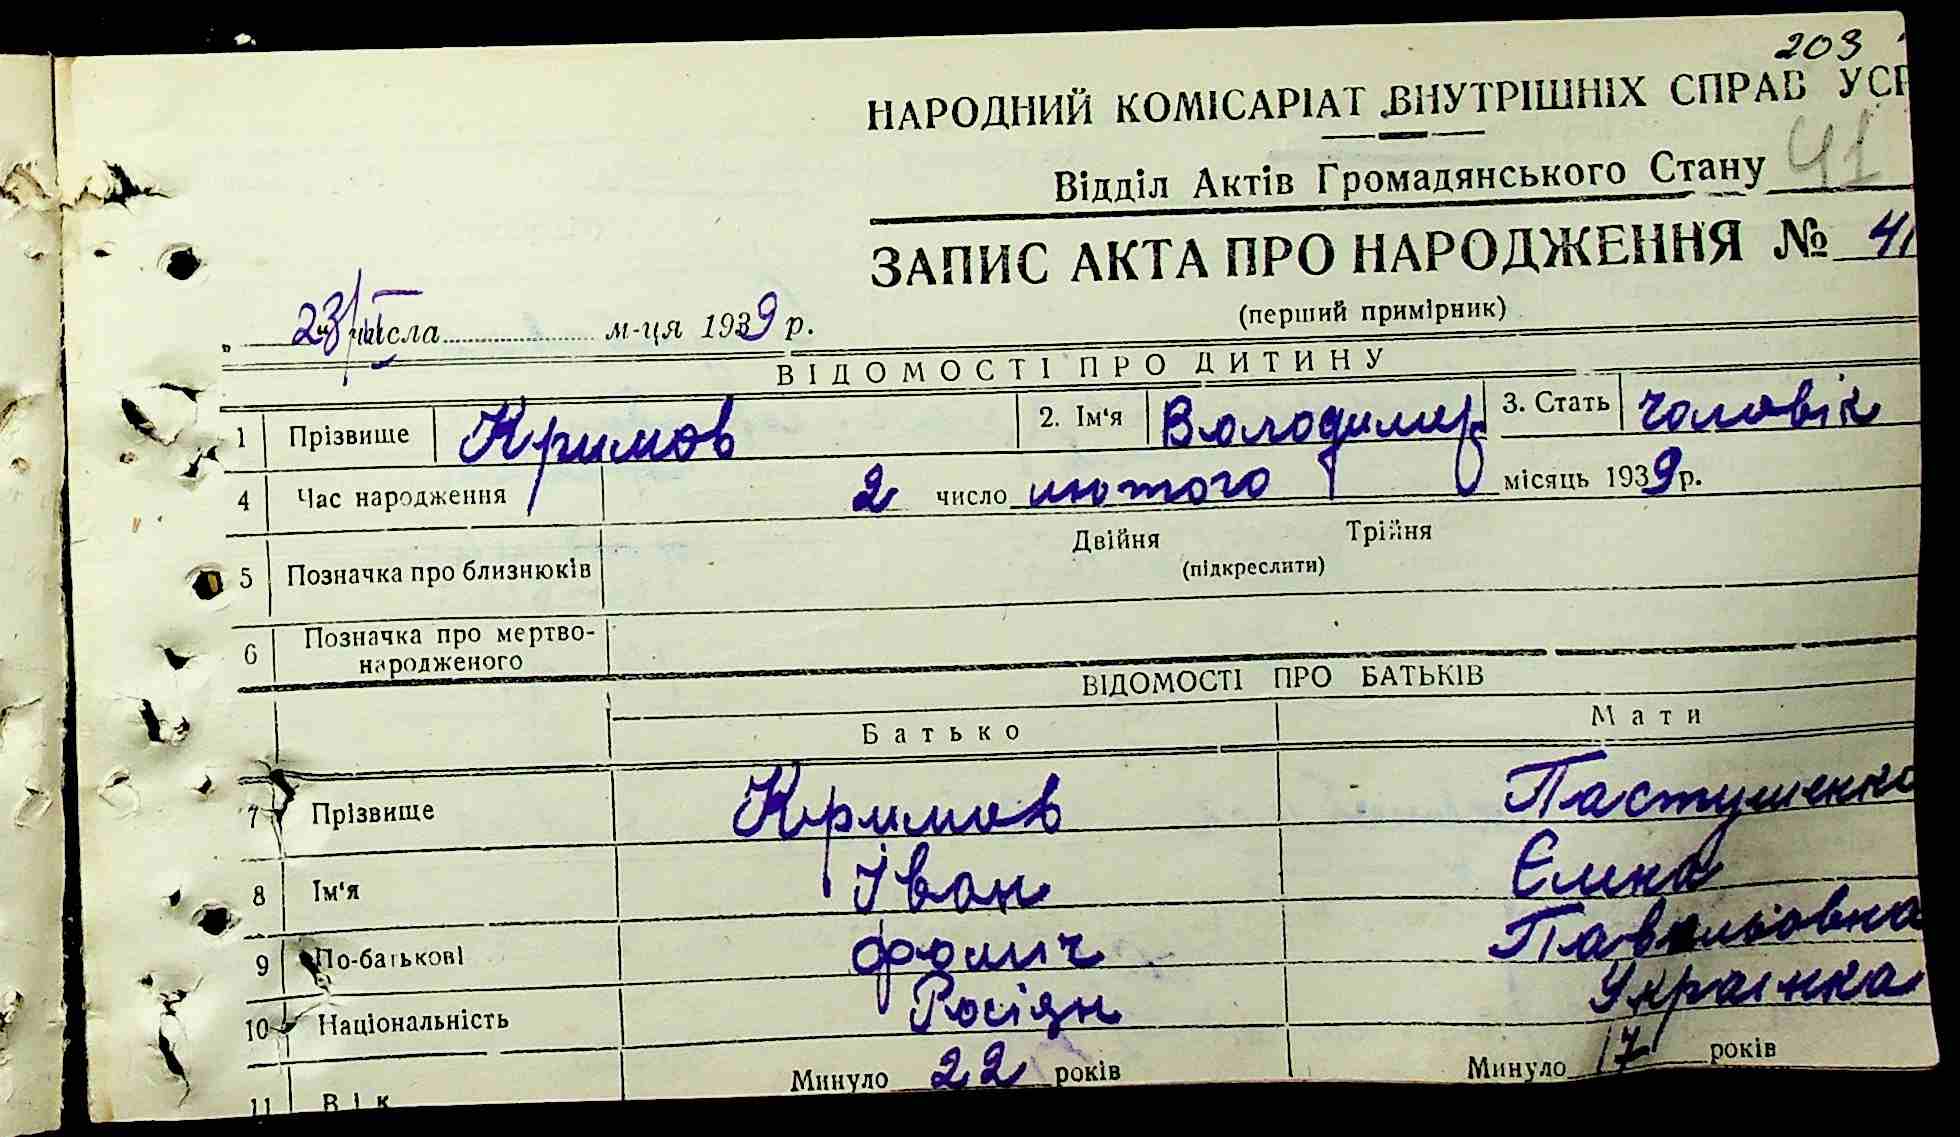 203
НАРОДНИЙ КОМІСАРІАТ ВНУТРІШНІХ СПРАВ УСР
Відділ Актів Громадянського Стану 41
ЗАПИС АКТА ПРО НАРОДЖЕННЯ № 41
(перший примірник)
„ 23/II числа м-ця 1939 р.
ВІДОМОСТІ ПРО ДИТИНУ
1 Прізвище Кримов 2. Ім'я Володимир 3. Стать чоловік
4 Час народження 2 число лютого місяць 1939 р.
Двійня Трійня
5 Позначка про близнюків (підкреслити)
6 Позначка про мертво-
народженого
ВІДОМОСТІ ПРО БАТЬКІВ
Батько Мати
7 Прізвище Кримов Пастушенко
8 Ім'я Іван Єлина
9 По-батькові Фомич Павльовна
10 Національність Росіян Українка
11 Вік Минуло 22 років Минуло 17 років